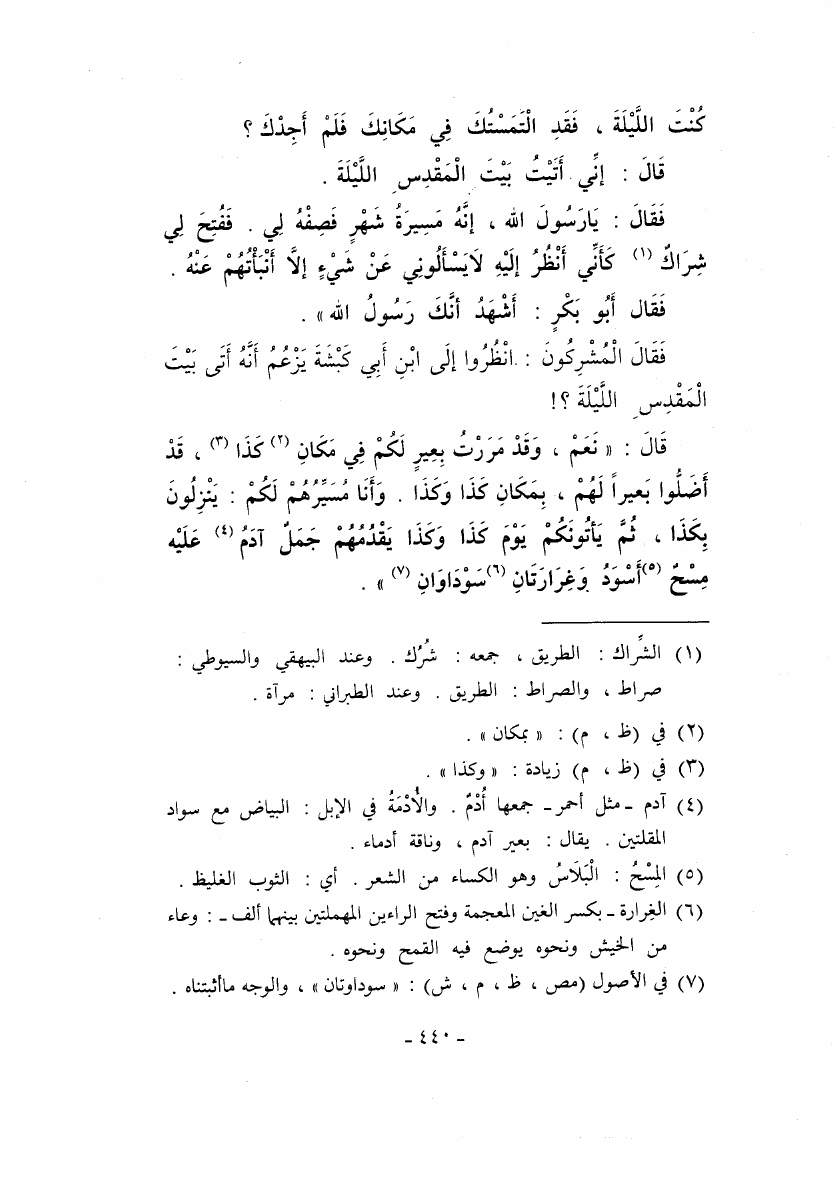 كُنْتَ اللَّيْلَةَ ، فَقَدِ الْتَمَسْتُكَ فِي مَكَانِكَ فَلَمْ أَجِدْكَ ؟
قَالَ : إِنِّي أَتَيْتُ بَيْتَ الْمَقْدِسِ اللَّيْلَةَ .
فَقَالَ : يَارَسُولَ الله ، إِنَّهُ مَسِيرَةُ شَهْرٍ فَصِفْهُ لِي . فَفُتِحَ لِي
شِرَاكٌ (١) كَأَنِّي أَنْظُرُ إِلَيْهِ لَايَسْأَلُونِي عَنْ شَيْءٍ إِلَّا أَنْبَأْتُهُمْ عَنْهُ .
فَقَال أَبُو بَكْرٍ : أَشْهَدُ أَنَّكَ رَسُولُ الله » .
فَقَالَ الْمُشْرِكُونَ : انْظُرُوا إِلَى ابْنِ أَبِي كَبْشَةَ يَزْعُمُ أَنَّهُ أَتَى بَيْتَ
الْمَقْدِسِ اللَّيْلَةَ ؟!
قَالَ : « نَعَمْ ، وَقَدْ مَرَرْتُ بِعِيرٍ لَكُمْ فِي مَكَانِ (٢) كَذَا (٣) ، قَدْ
أَضَلُّوا بَعِيراً لَهُمْ ، بِمَكَانِ كَذَا وَكَذَا . وَأَنَا مُسَيِّرُهُمْ لَكُمْ : يَنْزِلُونَ
بِكَذَا ، ثُمَّ يَأْتُونَكُمْ يَوْمَ كَذَا وَكَذَا يَقْدُمُهُمْ جَمَلٌ آدَمُ (٤) عَلَيْهِ
مِسْحٌ (٥) أَسْوَدُ وَغِرَارَتَانِ (٦) سَوْدَاوَانِ (٧) » .
(١) الشِّراك : الطريق ، جمعه : شُرُك . وعند البيهقي والسيوطي :
صراط ، والصراط : الطريق . وعند الطبراني : مرآة .
(٢) في (ظ ، م) : « بمكان » .
(٣) في (ظ ، م) زيادة : « وكذا » .
(٤) آدم - مثل أحمر - جمعها أُدْمٌ . والأُدْمَةُ في الإبل : البياض مع سواد
المقلتين . يقال : بعير آدم ، وناقة أدماء .
(٥) المِسْحُ : الْبَلَاسُ وهو الكساء من الشعر . أي : الثوب الغليظ .
(٦) الغِرارة - بكسر الغين المعجمة وفتح الراءين المهملتين بينهما ألف - : وعاء
من الخيش ونحوه يوضع فيه القمح ونحوه .
(٧) في الأصول (مص ، ظ ، م ، ش) : « سوداوتان » ، والوجه ماأثبتناه .
- ٤٤٠ -